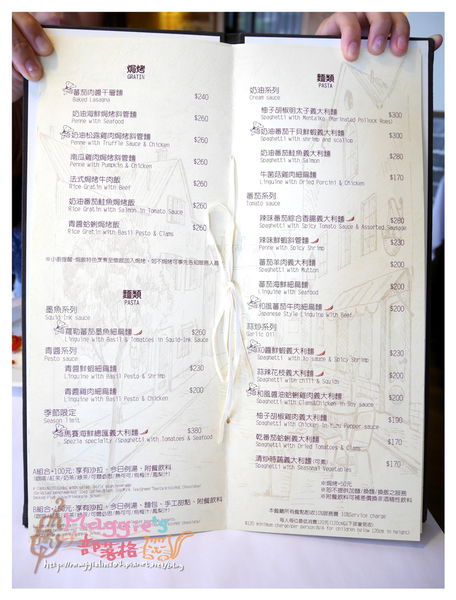 焗烤
GRATIN
番茄肉醬千層麵 $240
Baked Lasagna
奶油海鮮焗烤斜管麵 $260
Penne with Seafood
奶油松露雞肉焗烤斜管麵 $260
Penne with Truffle Sauce & Chicken
南瓜雞肉焗烤斜管麵 $260
Penne with Pumpkin & Chicken
法式焗烤牛肉飯 $260
Rice Gratin with Beef
奶油番茄鮭魚焗烤飯 $260
Rice Gratin with Salmon in Tomato Sauce
青醬蛤蜊焗烤飯 $260
Rice Gratin with Basil Pesto & Clams
麵類
PASTA
墨魚系列
Squid-Ink sauce
羅勒番茄墨魚細扁麵 $260
Linguine with Basil & Tomatoes in Squid-Ink Sauce
青醬系列
Pesto sauce
青醬鮮蝦細扁麵 $230
Linguine with Basil Pesto & Shrimp
青醬雞肉細扁麵 $200
Linguine with Basil Pesto & Chicken
季節限定
Season limit
馬賽海鮮總匯義大利麵 $380
Spezia specialty /Spaghetti with Tomatoes & Seafood
A組合+100元: 享有沙拉、今日例湯、附餐飲料
B組合+150元: 享有沙拉、今日例湯、麵包、手工甜點、附餐飲料
麵類
PASTA
奶油系列
Cream sauce
柚子胡椒明太子義大利麵 $300
Spaghetti with Mentaiko (Marinated Pollock Roes)
奶油番茄干貝鮮蝦義大利麵 $300
Spaghetti with shrimp and scallop
奶油番茄鮭魚義大利麵 $280
Spaghetti with Salmon
牛菌菇雞肉細扁麵 $170
Linguine with Dried Porcini & Chicken
番茄系列
Tomato sauce
辣味番茄綜合香腸義大利麵 $280
Spaghetti with Spicy Tomato Sauce & Assorted Sausage
辣味鮮蝦斜管麵 $230
Penne with Spicy Shrimp
番茄羊肉義大利麵 $200
Spaghetti with Mutton
番茄海鮮細扁麵 $200
Linguine with Seafood
和風番茄牛肉細扁麵 $200
Japanese Style Linguine With Beef
蒜炒系列
Garlic Oil
XO醬鮮蝦義大利麵 $230
Spaghetti with XO sauce & Spicy Shrimp
蒜辣花枝義大利麵 $200
Spaghetti with chili & Squids
和風醬油蛤蜊義大利麵 $200
Spaghetti with Clams & Chicken in Soy sauce
柚子胡椒雞肉義大利麵 $190
Spaghetti with Chicken in Yuzu Pepper sauce
乾番茄蛤蜊義大利麵 $170
Spaghetti with Dried Tomatoes & Clams
清炒時蔬義大利麵(可素) $170
Spaghetti with Seasonal Vegetables
※焗烤+50元
本餐廳所有餐點酌收10%服務費 10%Service charge
Maggie's
部落格